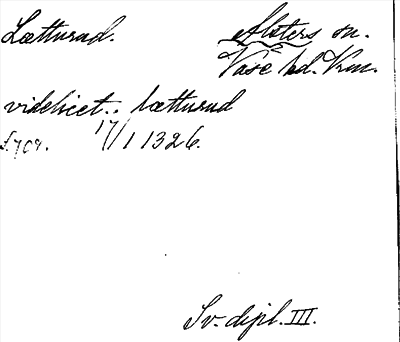 Lætturud. Alsters sn.
Väse hd. Vrm.
videlicet.. lætturud
s. 709. 17/1 1326.
Sv. dipl. III.